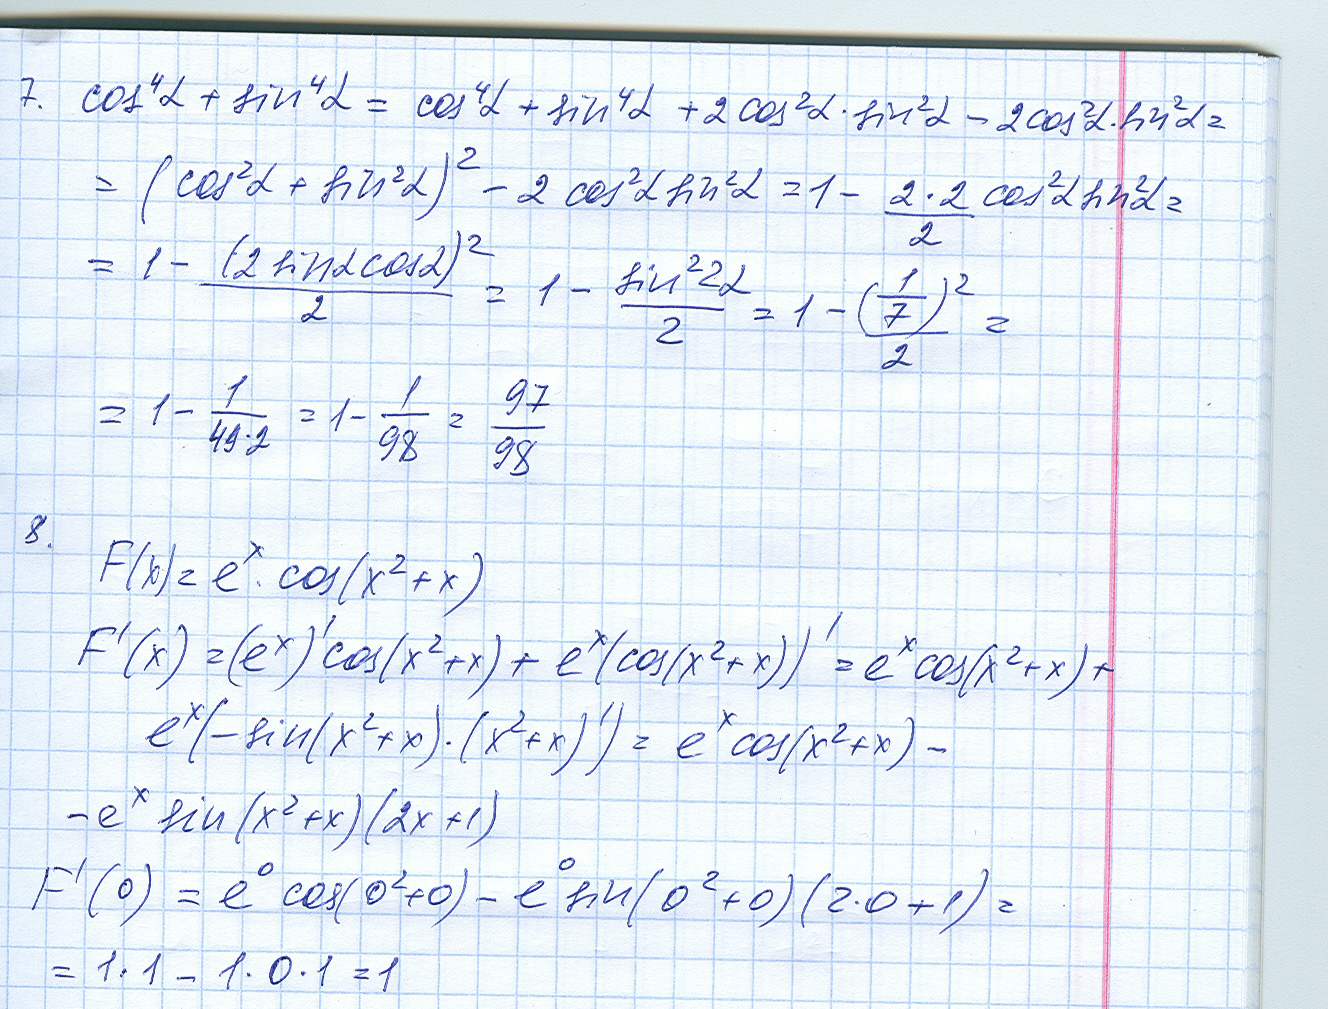 7. cos⁴α + sin⁴α = cos⁴α + sin⁴α + 2cos²α·sin²α − 2cos²α·sin²α =
= (cos²α + sin²α)² − 2cos²α sin²α = 1 − (2·2)/2 cos²α sin²α =
= 1 − (2sinαcosα)²/2 = 1 − sin²2α/2 = 1 − (1/7)²/2 =
= 1 − 1/(49·2) = 1 − 1/98 = 97/98
8.
F(x) = eˣ · cos(x²+x)
F'(x) = (eˣ)'cos(x²+x) + eˣ(cos(x²+x))' = eˣcos(x²+x) +
eˣ(−sin(x²+x)·(x²+x)') = eˣcos(x²+x) −
−eˣ sin(x²+x)(2x+1)
F'(0) = e⁰ cos(0²+0) − e⁰ sin(0²+0)(2·0+1) =
= 1·1 − 1·0·1 = 1